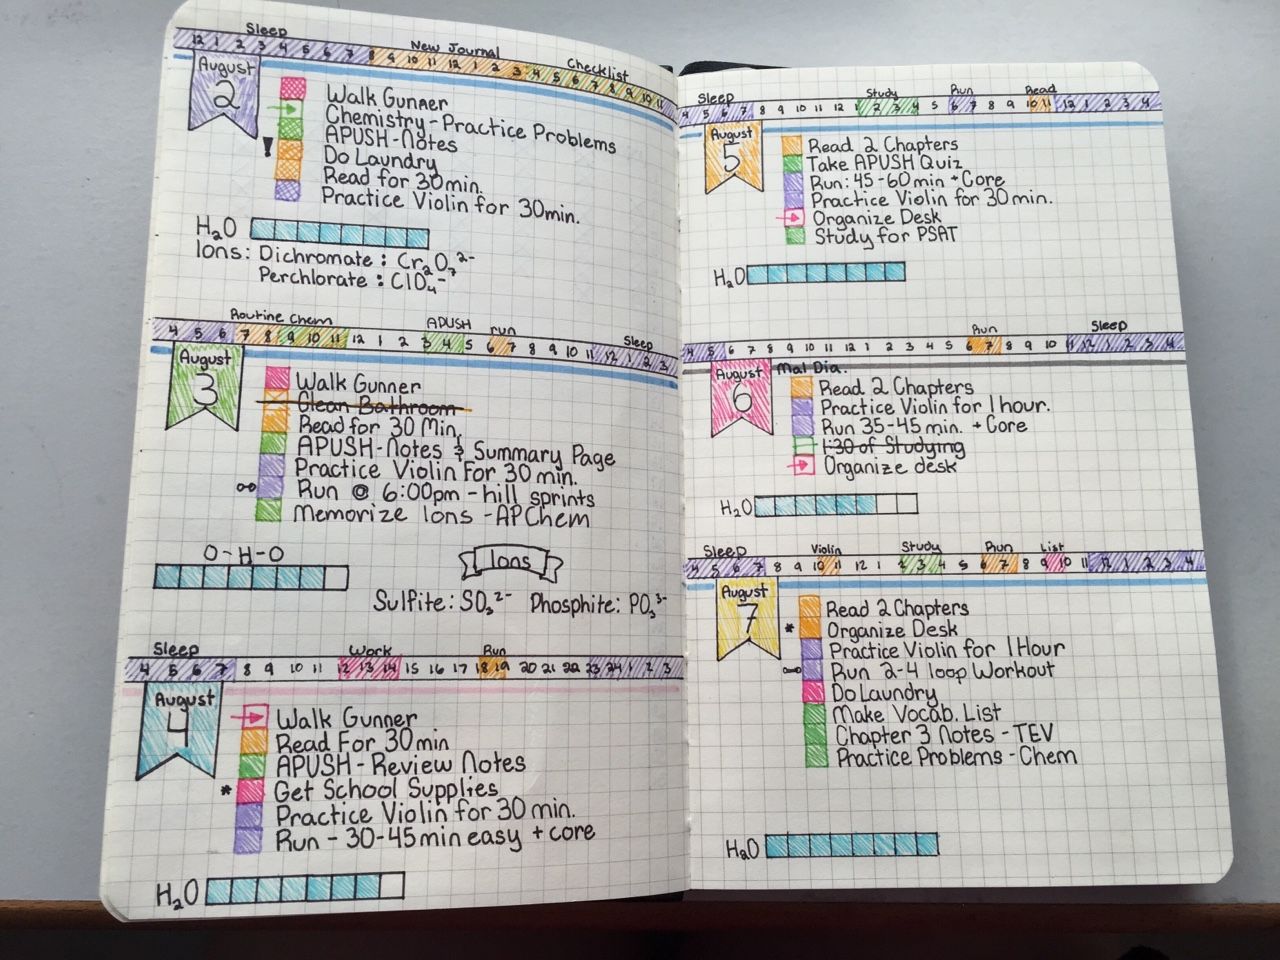 Sleep New Journal Checklist
12 1 2 3 4 5 6 7 8 9 10 11 12 1 2 3 4 5 6 7 8 9 10 11
August
2
Walk Gunner
Chemistry - Practice Problems
APUSH-Notes
! Do Laundry
Read for 30 min.
Practice Violin for 30min.
H₂O
Ions: Dichromate : Cr₂O₇²⁻
Perchlorate : ClO₄⁻
Routine Chem APUSH run Sleep
4 5 6 7 8 9 10 11 12 1 2 3 4 5 6 7 8 9 10 11 12 1 2 3
August
3
Walk Gunner
Clean Bathroom
Read for 30 Min.
APUSH-Notes & Summary Page
Practice Violin For 30 min.
Run @ 6:00pm - hill sprints
Memorize Ions - AP Chem
O-H-O
Ions
Sulfite: SO₃²⁻ Phosphite: PO₃³⁻
Sleep Work Run
4 5 6 7 8 9 10 11 12 13 14 15 16 17 18 19 20 21 22 23 24 1 2 3
August
4
Walk Gunner
Read For 30 min
APUSH - Review Notes
* Get School Supplies
Practice Violin for 30 min.
Run - 30-45min easy + core
H₂O
Sleep Study Run Read
4 5 6 7 8 9 10 11 12 1 2 3 4 5 6 7 8 9 10 11 12 1 2 3 4
August
5
Read 2 Chapters
Take APUSH Quiz
Run: 45-60 min + Core
Practice Violin for 30 min.
Organize Desk
Study for PSAT
H₂O
Run Sleep
4 5 6 7 8 9 10 11 12 1 2 3 4 5 6 7 8 9 10 11 12 1 2 3 4
August
6
Mal Dia.
Read 2 Chapters
Practice Violin for 1 hour.
Run 35-45 min. + Core
1:30 of Studying
Organize desk
H₂O
Sleep Violin Study Run List
4 5 6 7 8 9 10 11 12 1 2 3 4 5 6 7 8 9 10 11 12 1 2 3 4
August
7
Read 2 Chapters
* Organize Desk
Practice Violin for 1 Hour
Run 2-4 loop Workout
Do Laundry
Make Vocab. List
Chapter 3 Notes - TEV
Practice Problems - Chem
H₂O